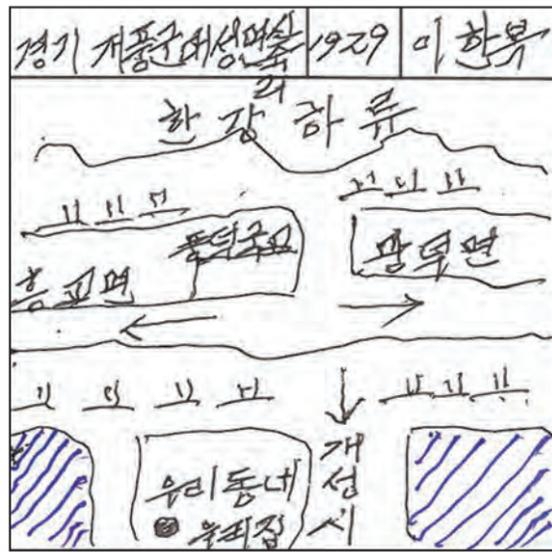 경기 개풍군대성면
1929
이한복
한강하류
풍덕국교
광덕면
흥교면
개성시
우리동네
우리집